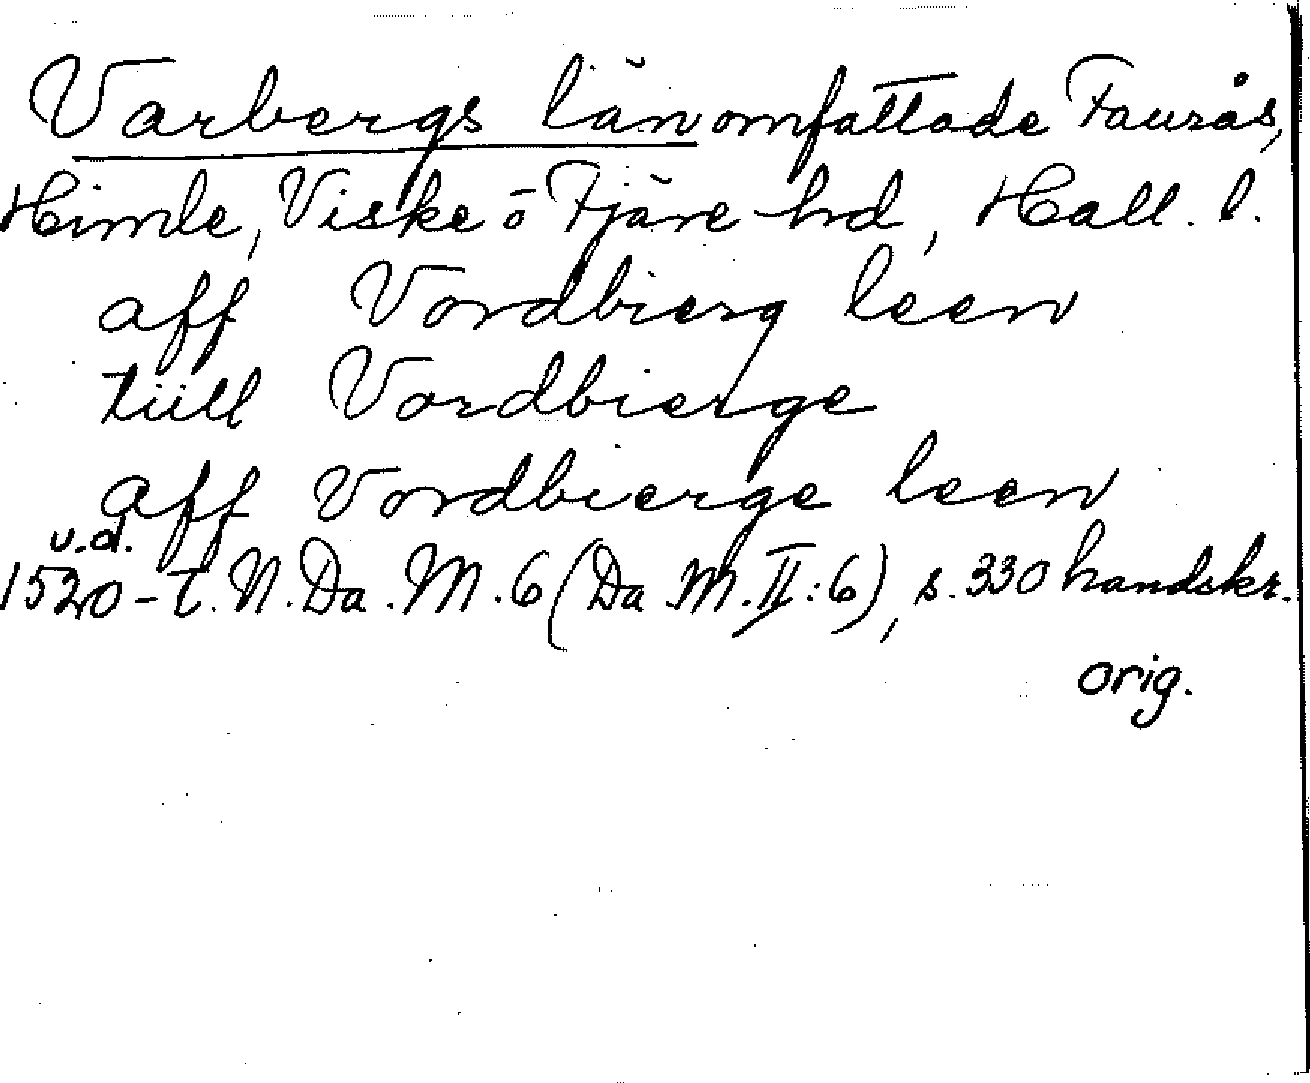 Varbergs län omfattade Faurås,
Himle, Viske o Fjäre hd, Hall. l.
aff Vordbierg leen
tiill Vordbierge
aff Vordbierge leen
u.d.
1520-t. N. Da. M. 6 (Da M. II:6), s. 330 handskr.
orig.